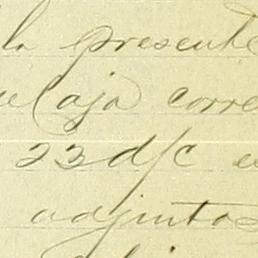 la presente
Caja corre
23 d/c
adjuntos